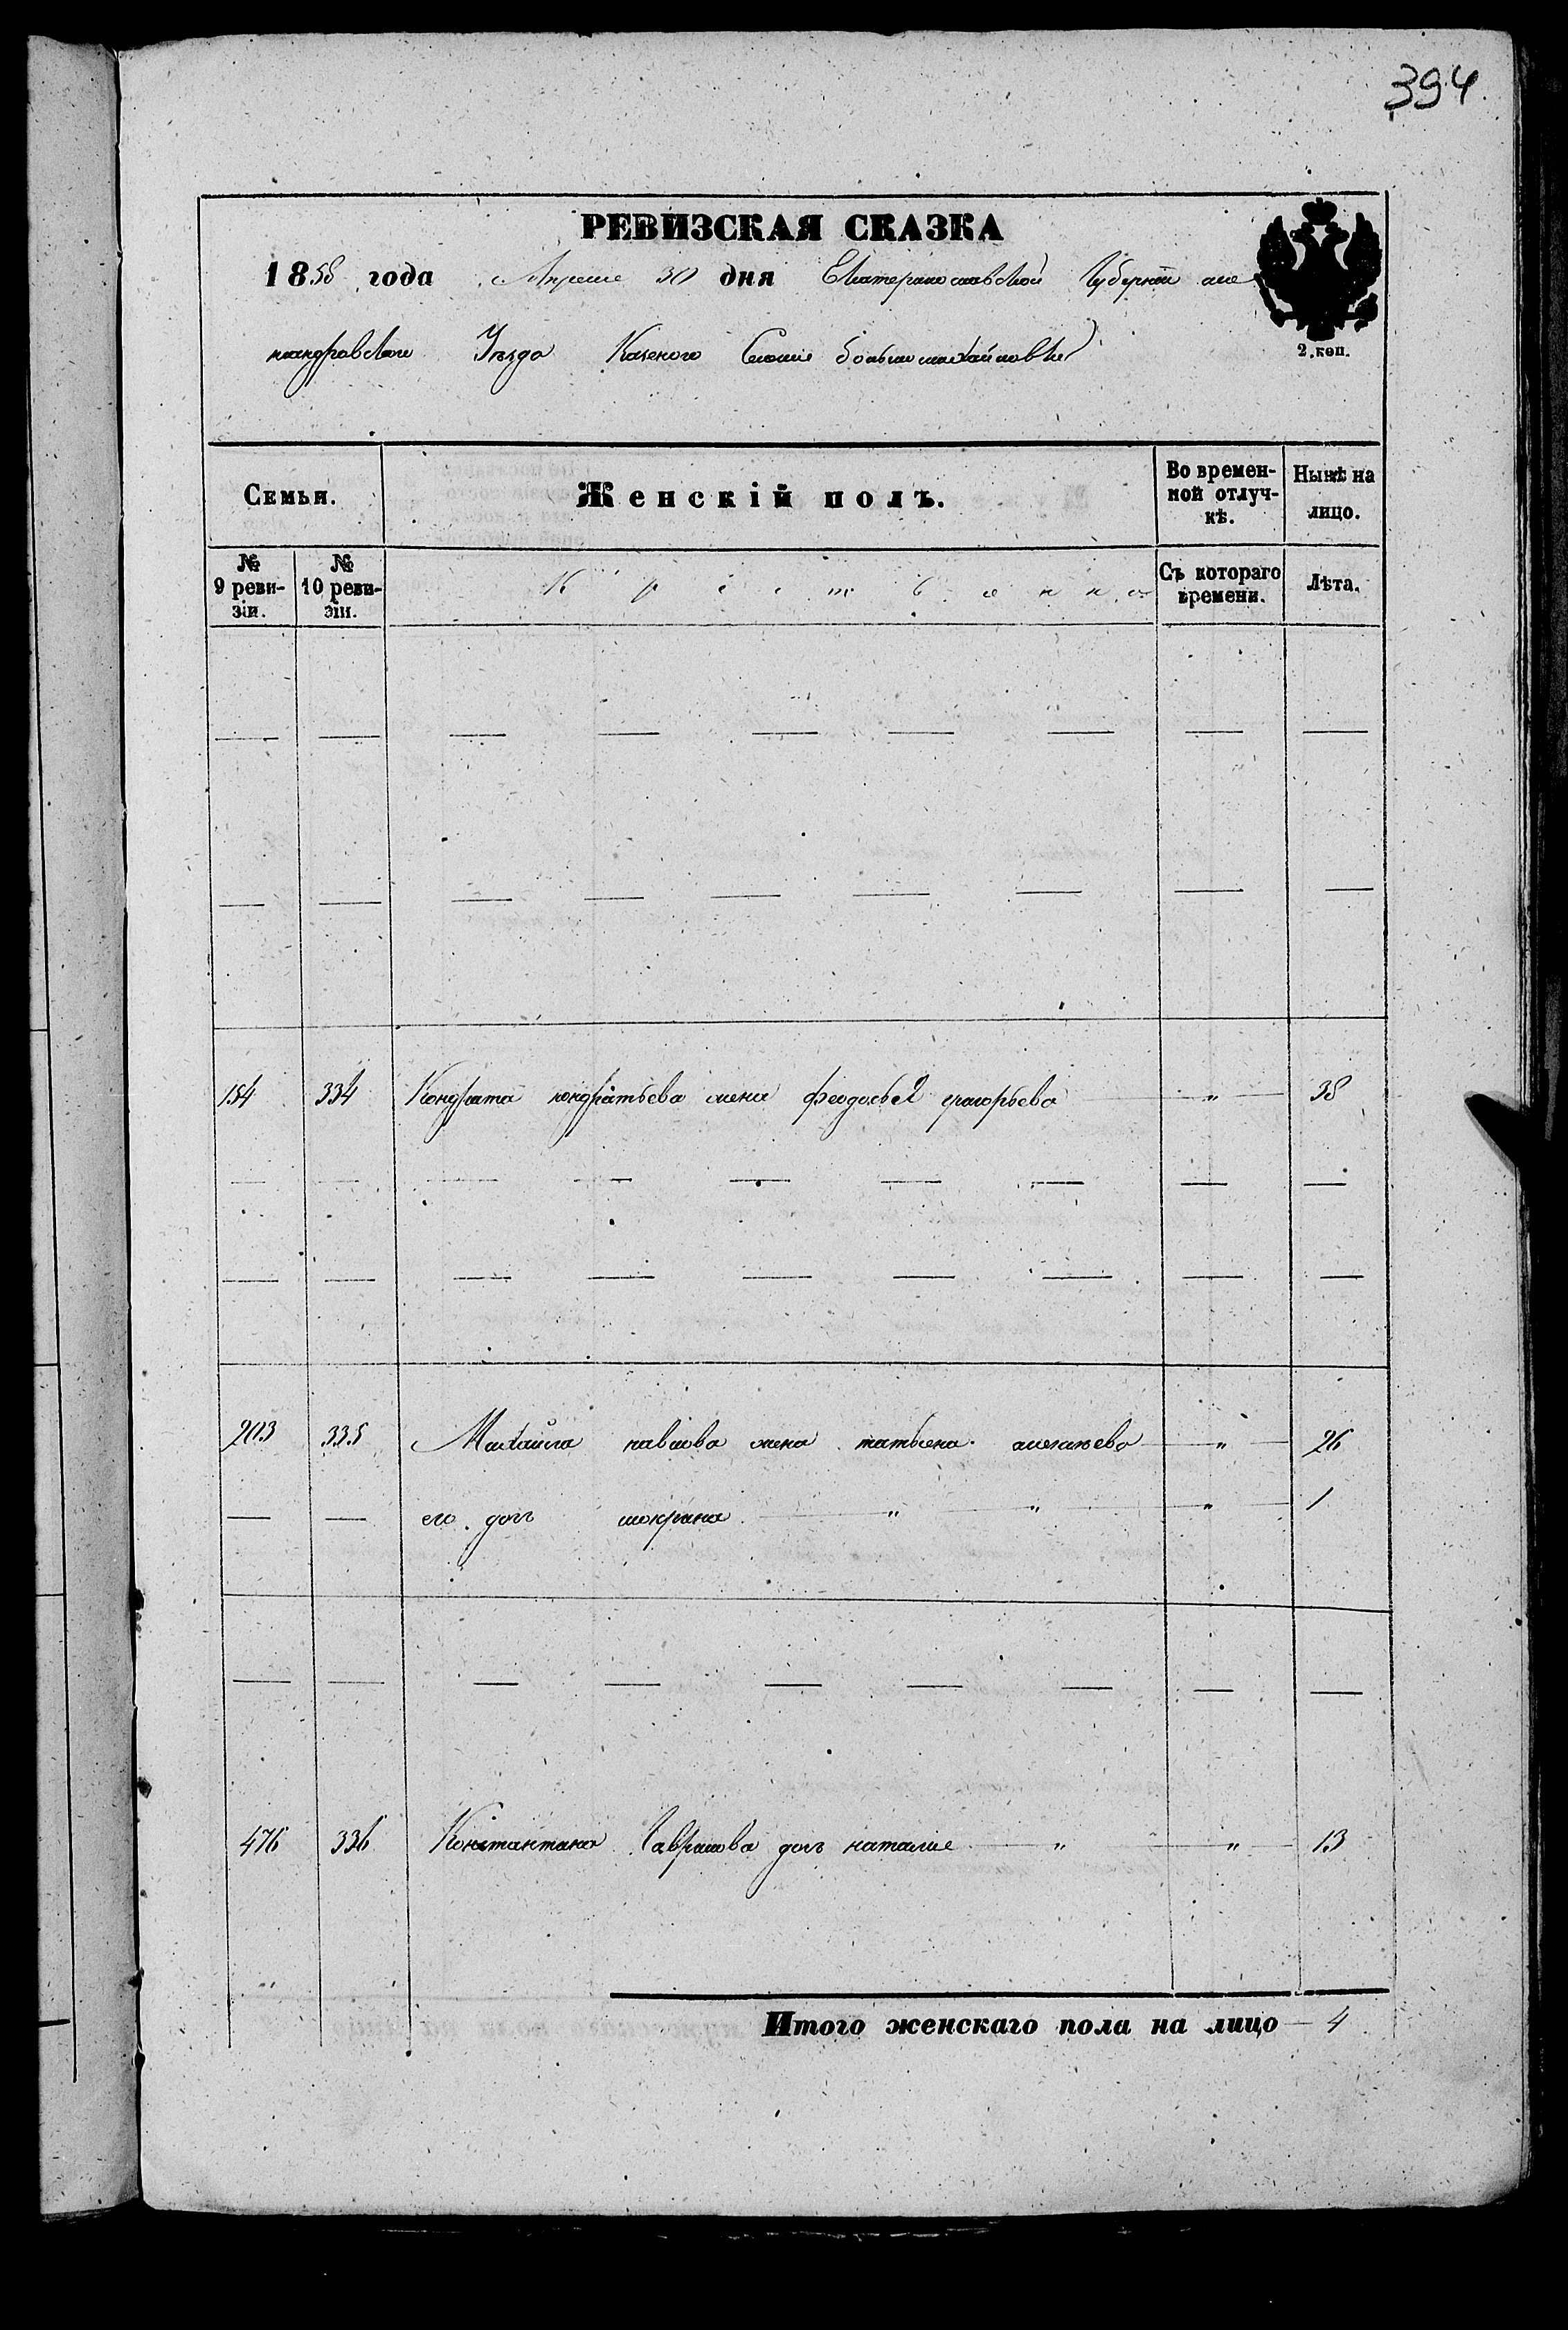 394
РЕВИЗСКАЯ СКАЗКА
1858 года Апреля 30 дня Екатеринославской Губернии алек
сандровского Уезда Казеного Селения большемихайловки
2. коп.
Семьи.
Женскій полъ.
Во времен-
ной отлуч-
кѣ.
Нынѣ на
лицо.
№
9 реви-
зіи.
№
10 реви-
зіи.
Крестьянка
Съ котораго
времени.
Лѣта.
— — — — — — — — —
— — — — — — — — —
184 334 Кондрата кондратьева жена феодосья григорьева — " — 38
— — — — — — — — —
— — — — — — — — —
203 335 Михайла павлова жена татьяна алексеева — " — 26
— — его дочь мокрина — " — " — " — 1
— — — — — — — — —
476 336 Константина Гаврилова дочь наталия — " — " — 13
Итого женскаго пола на лицо — 4